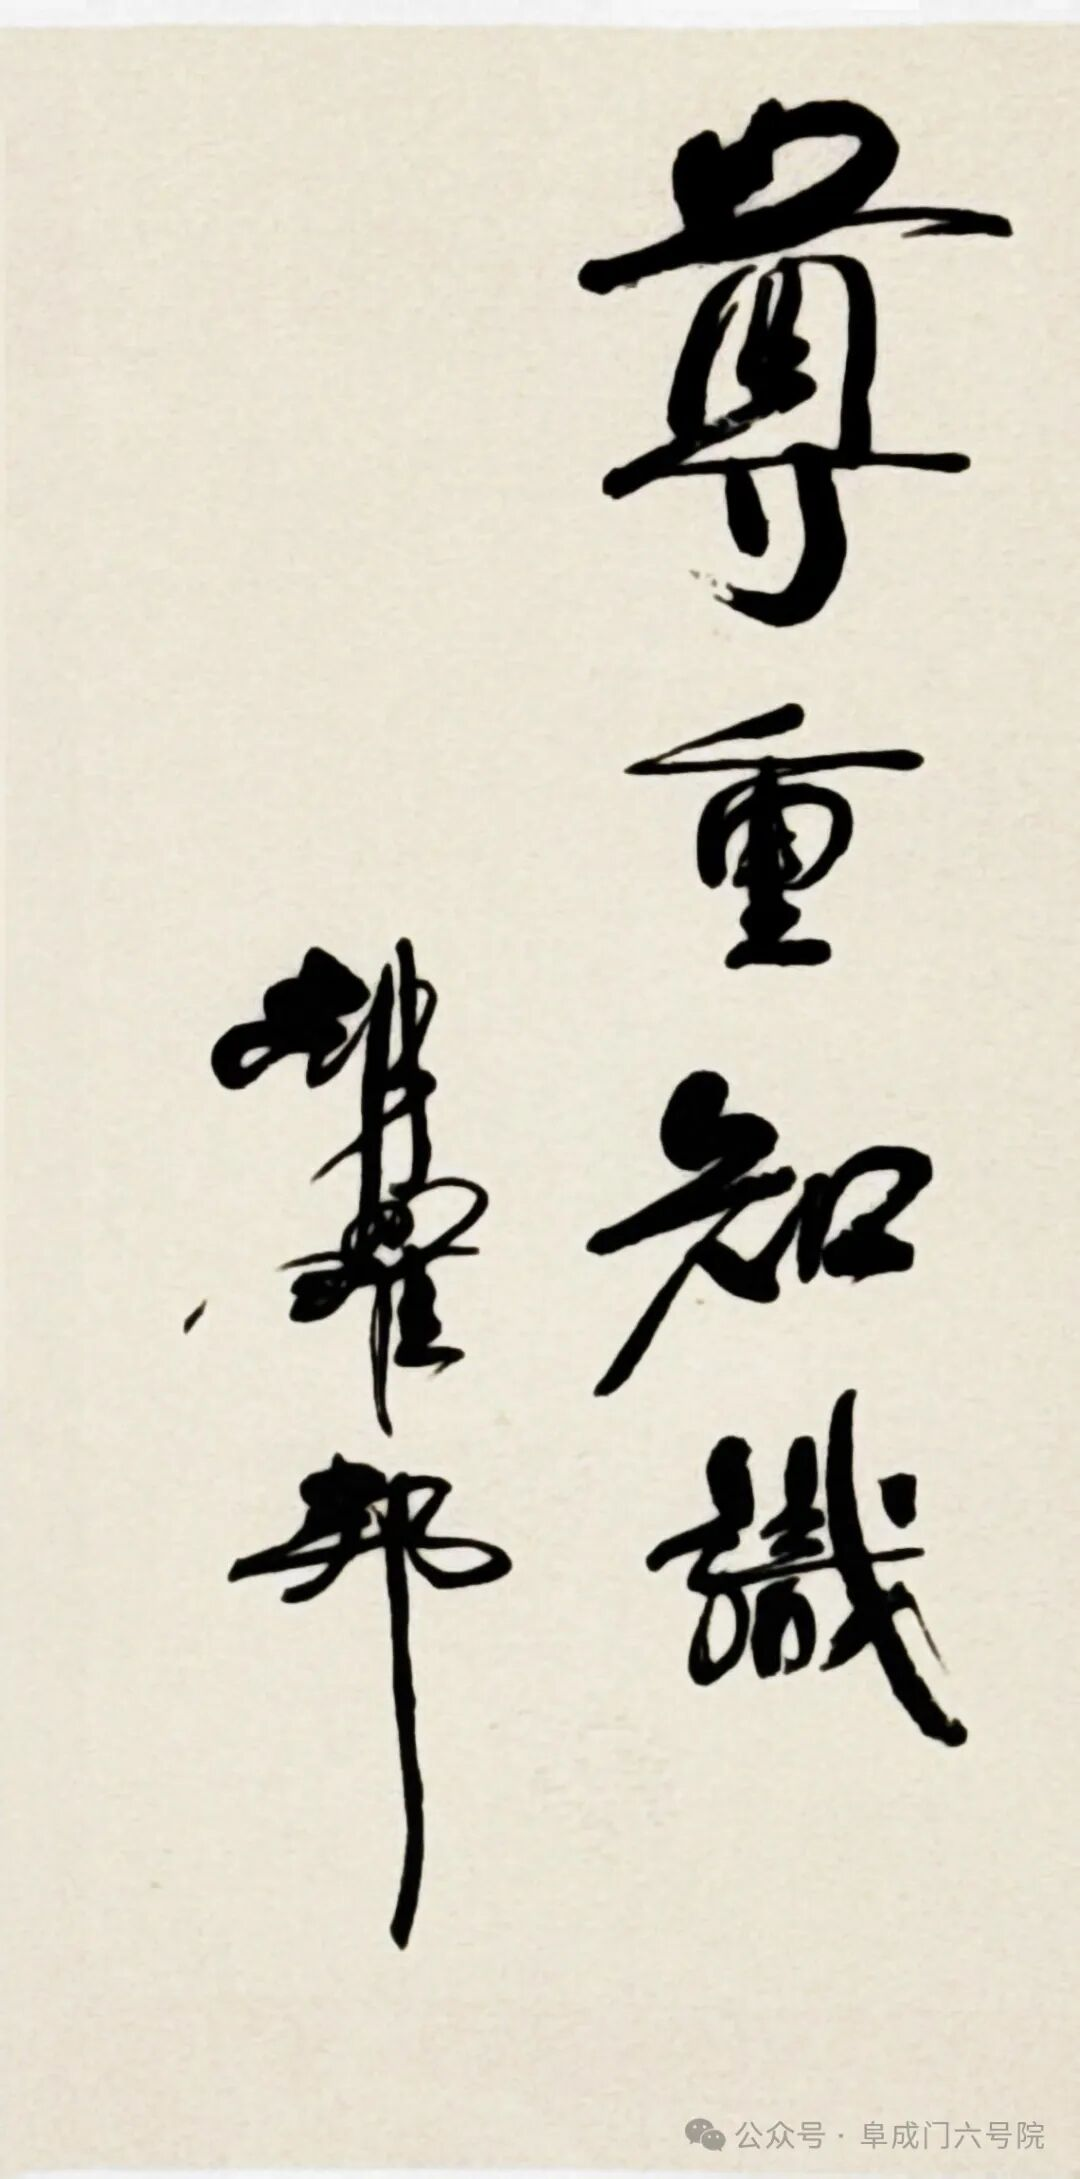 尊重知識
胡耀邦
公众号·阜成门六号院